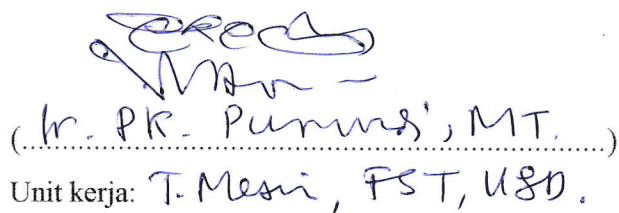 (Ir. PK. Purwadi, MT.)
Unit kerja: T. Mesin, FST, USD.